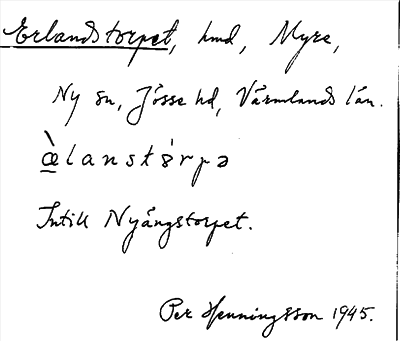 Erlandstorpet, hmd, Myre,
Ny sn, Jösse hd, Värmlands län.
æ̀lanstɵ́rpə
Intill Nyängstorpet.
Per Henningsson 1945.